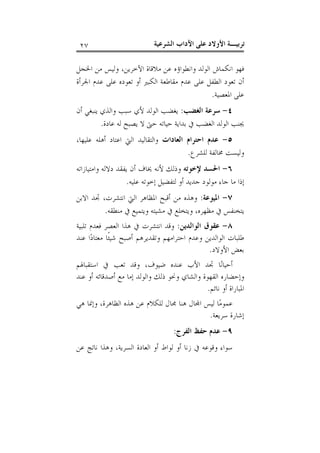 تربيــة الأولاد على الآداب الشرعية
٢٧
فهو انكماش الولد وانطواؤه عن ملاقاة الآخرين، وليس من الخجل
أن تعود الطفل على عدم مقاطعة الكبير أو تعوده على عدم الجرأة
على المعصية.
٤- سرعة الغضب: بغضب الولد لأي سبب والذي ينبغي أن
يجنب الولد الغضب في بداية حياته حتى لا يصبح له عادة.
٥- عدم احترام العادات والتقاليد التي اعتاد أهله عليها،
وليست مخالفة للشرع.
٦- الحسد لإخوته وذلك لأنه يخاف أن يفقد دلاله وامتيازاته
إذا ما جاء مولود جديد أو لتفضيل إخوته عليه.
٧- الميوعة: وهذه من أقبح المظاهر التي انتشرت، تجد الابن
يتخنفس في مظهره، ويتخلع في مشيته ويتميع في منطقه.
٨- عقوق الوالدين: وقد انتشرت في هذا العصر فعدم تلبية
طلبات الوالدين وعدم احترامهم وتقديرهم أصبح شيئًا معتادًا عند
بعض الأولاد.
أحيانًا تجد الأب عنده ضيوف، وقد تعب في استقبالهم
وإحضاره القهوة والشاي ونحو ذلك والولد إما مع أصدقائه أو عند
المباراة أو نائم.
عمومًا ليس المجال هنا مجال للكلام عن هذه الظاهرة، وإنما هي
إشارة سريعة.
٩- عدم حفظ الفرج:
سواء وقوعه في زنا أو لواط أو العادة السرية، وهذا ناتج عن